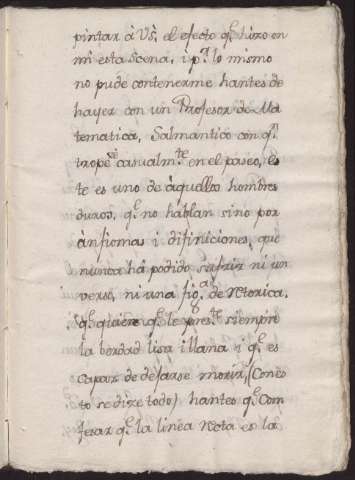 pintar à Vs̃. el efecto q.e hizo en
mi esta Scena, i p.r lo mismo
no pude contenerme hantes de
hayer con un Profesor de Ma
tematica, Salmantico con q.n
tropesè casualm.te en el paseo, es
te es uno de àquellos hombres
duros, q.e no hablan sino por
ànsiomas i difiniciones, que
nunca hà podido sufrir ni un
verso, ni una fig.a de Retorica.
q.e quiere q.e le pres.te siempre
la bordad lisa i llana i q.e es
capaz de dejarse morir, (Con es
to se dize todo) hantes q.e Com
fesar q.e la linea Recta es la